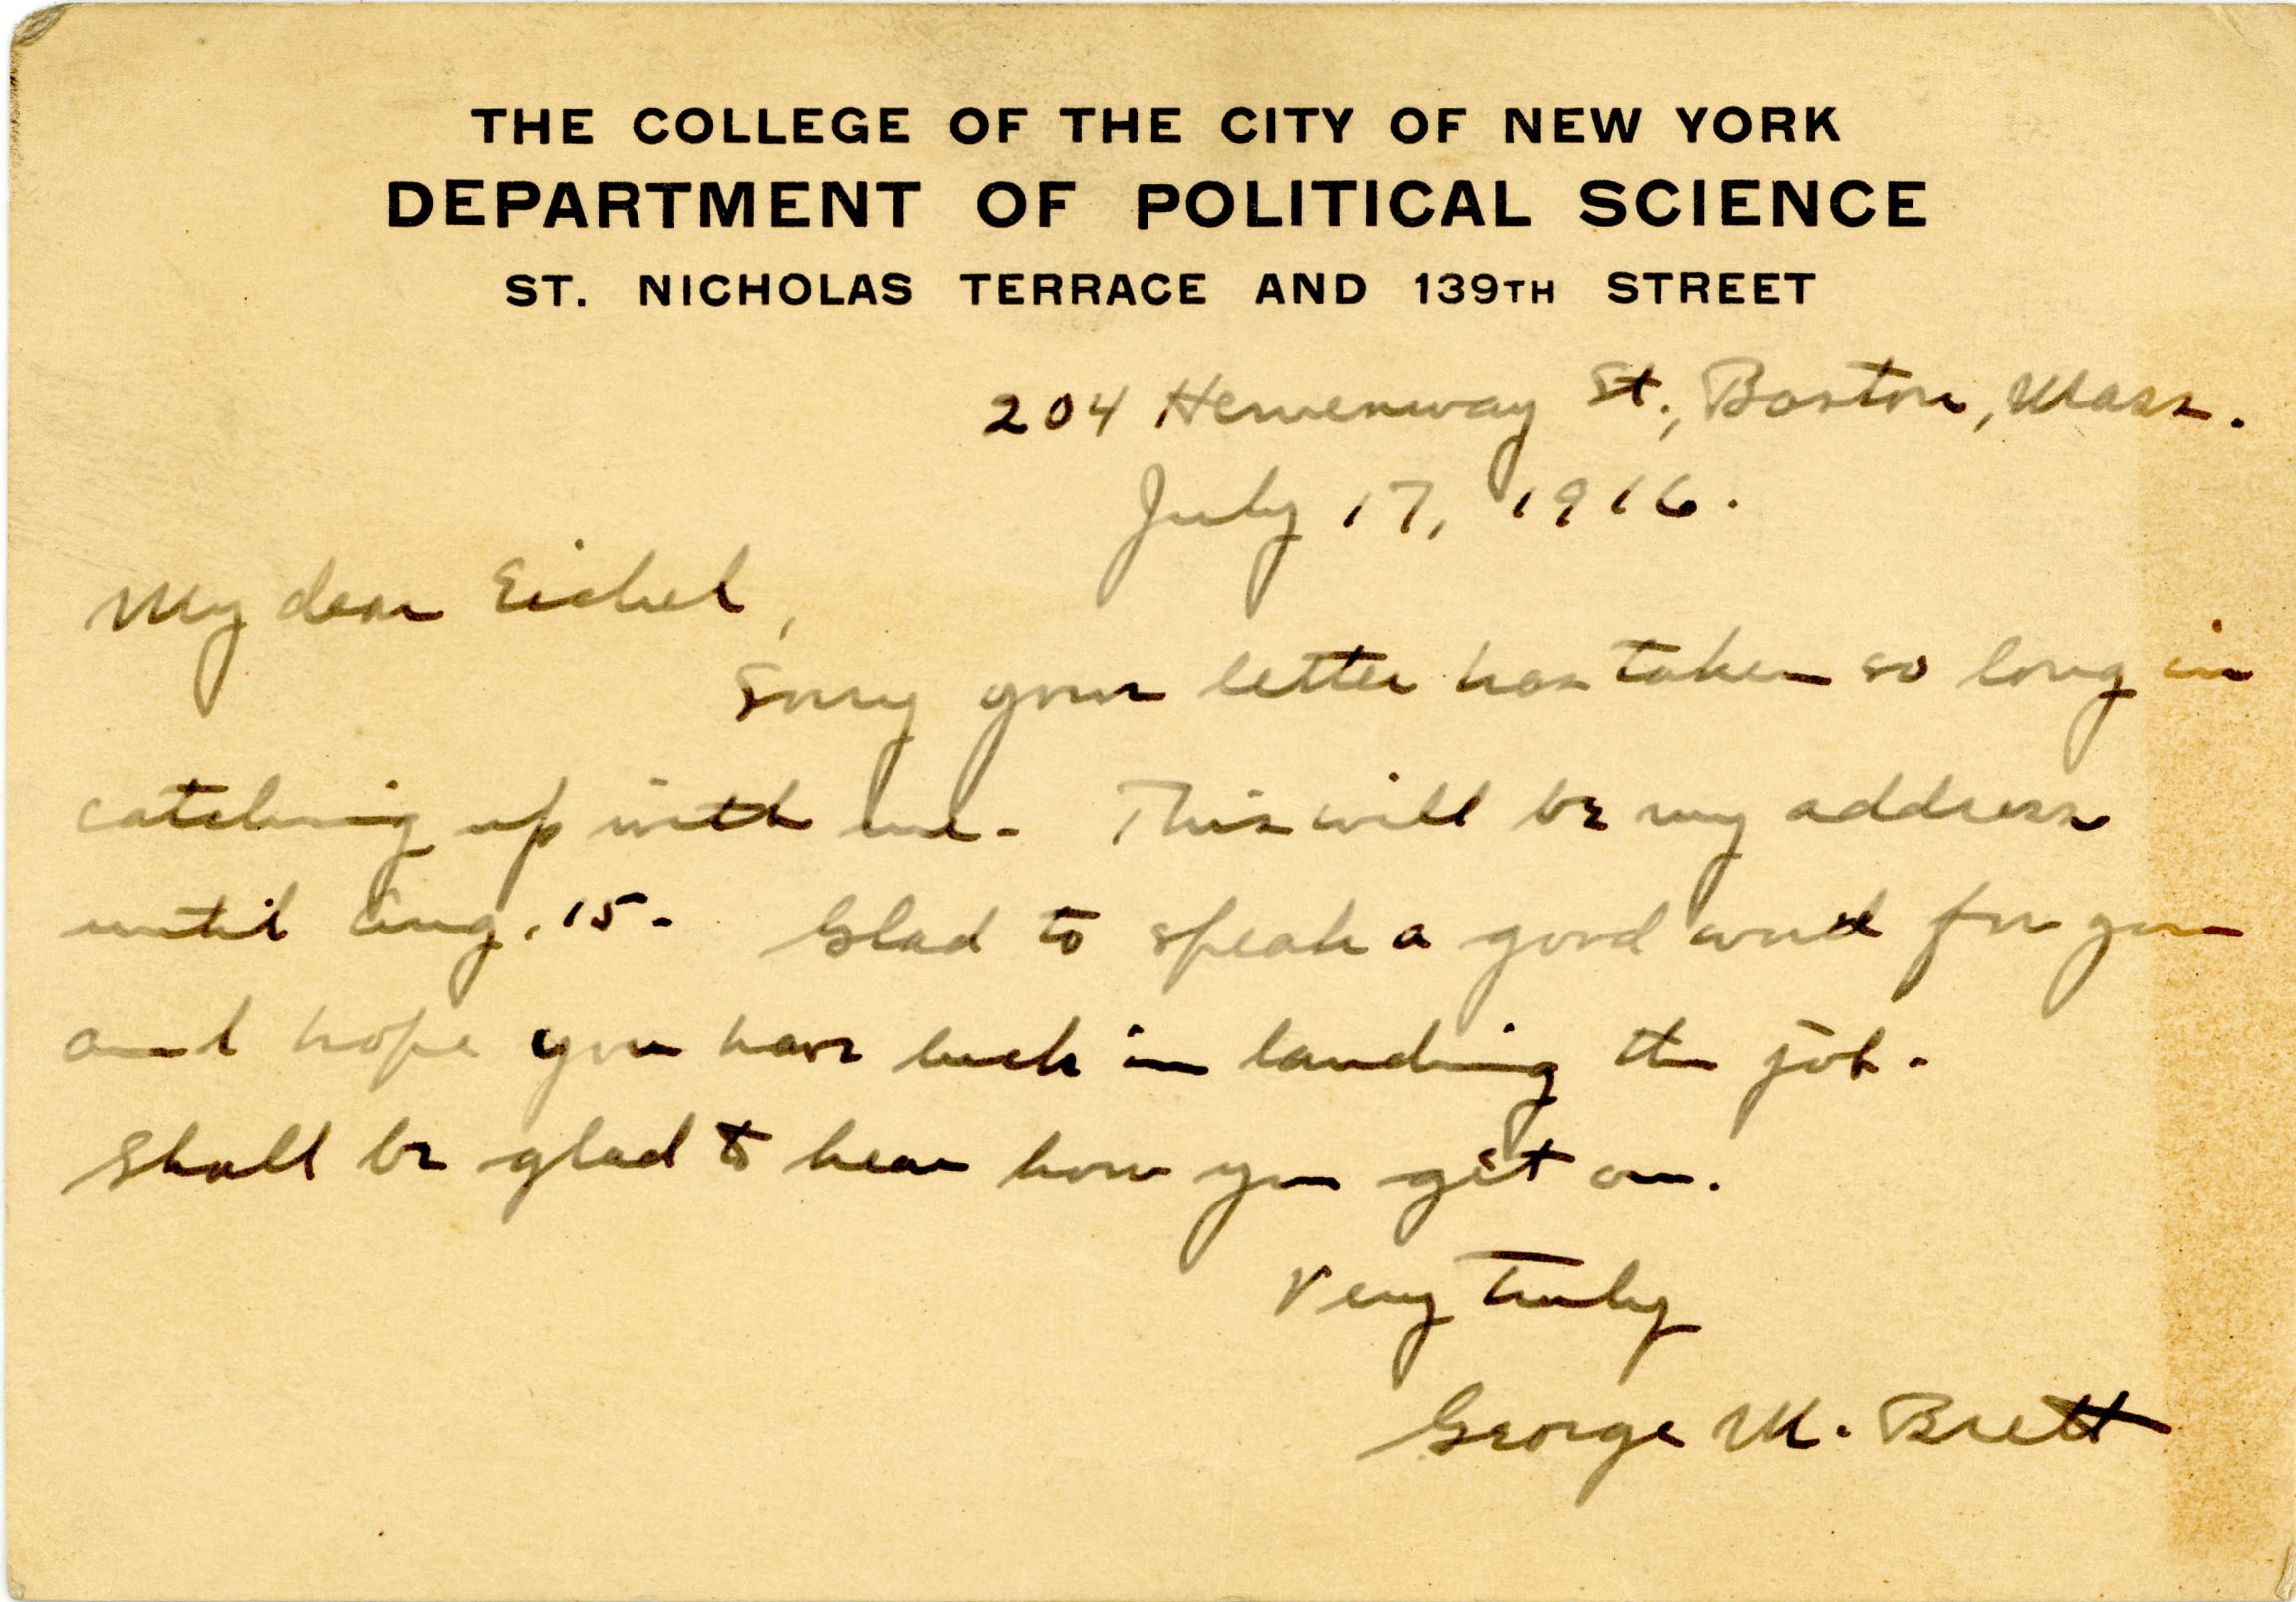 THE COLLEGE OF THE CITY OF NEW YORK
DEPARTMENT OF POLITICAL SCIENCE
ST. NICHOLAS TERRACE AND 139TH STREET
204 Hemenway St., Boston, Mass.
July 17, 1916.
My dear Eichel,
Sorry your letter has taken so long in
catching up with me. This will be my address
until Aug. 15. Glad to speak a good word for you
and hope you have luck in landing the job.
Shall be glad to hear how you get on.
Very truly
George M. Brett